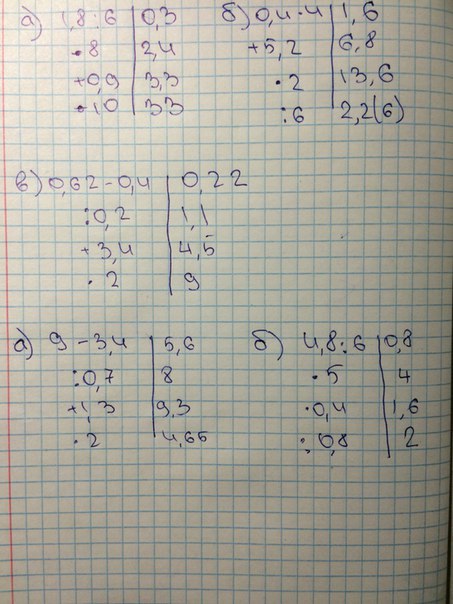 а) 1,8:6 | 0,3
·8 | 2,4
+0,9 | 3,3
·10 | 33
б) 0,4·4 | 1,6
+5,2 | 6,8
·2 | 13,6
:6 | 2,2(6)
в) 0,62-0,4 | 0,22
:0,2 | 1,1
+3,4 | 4,5
·2 | 9
а) 9-3,4 | 5,6
:0,7 | 8
+1,3 | 9,3
·2 | 4,65
б) 4,8:6 | 0,8
·5 | 4
·0,4 | 1,6
:0,8 | 2